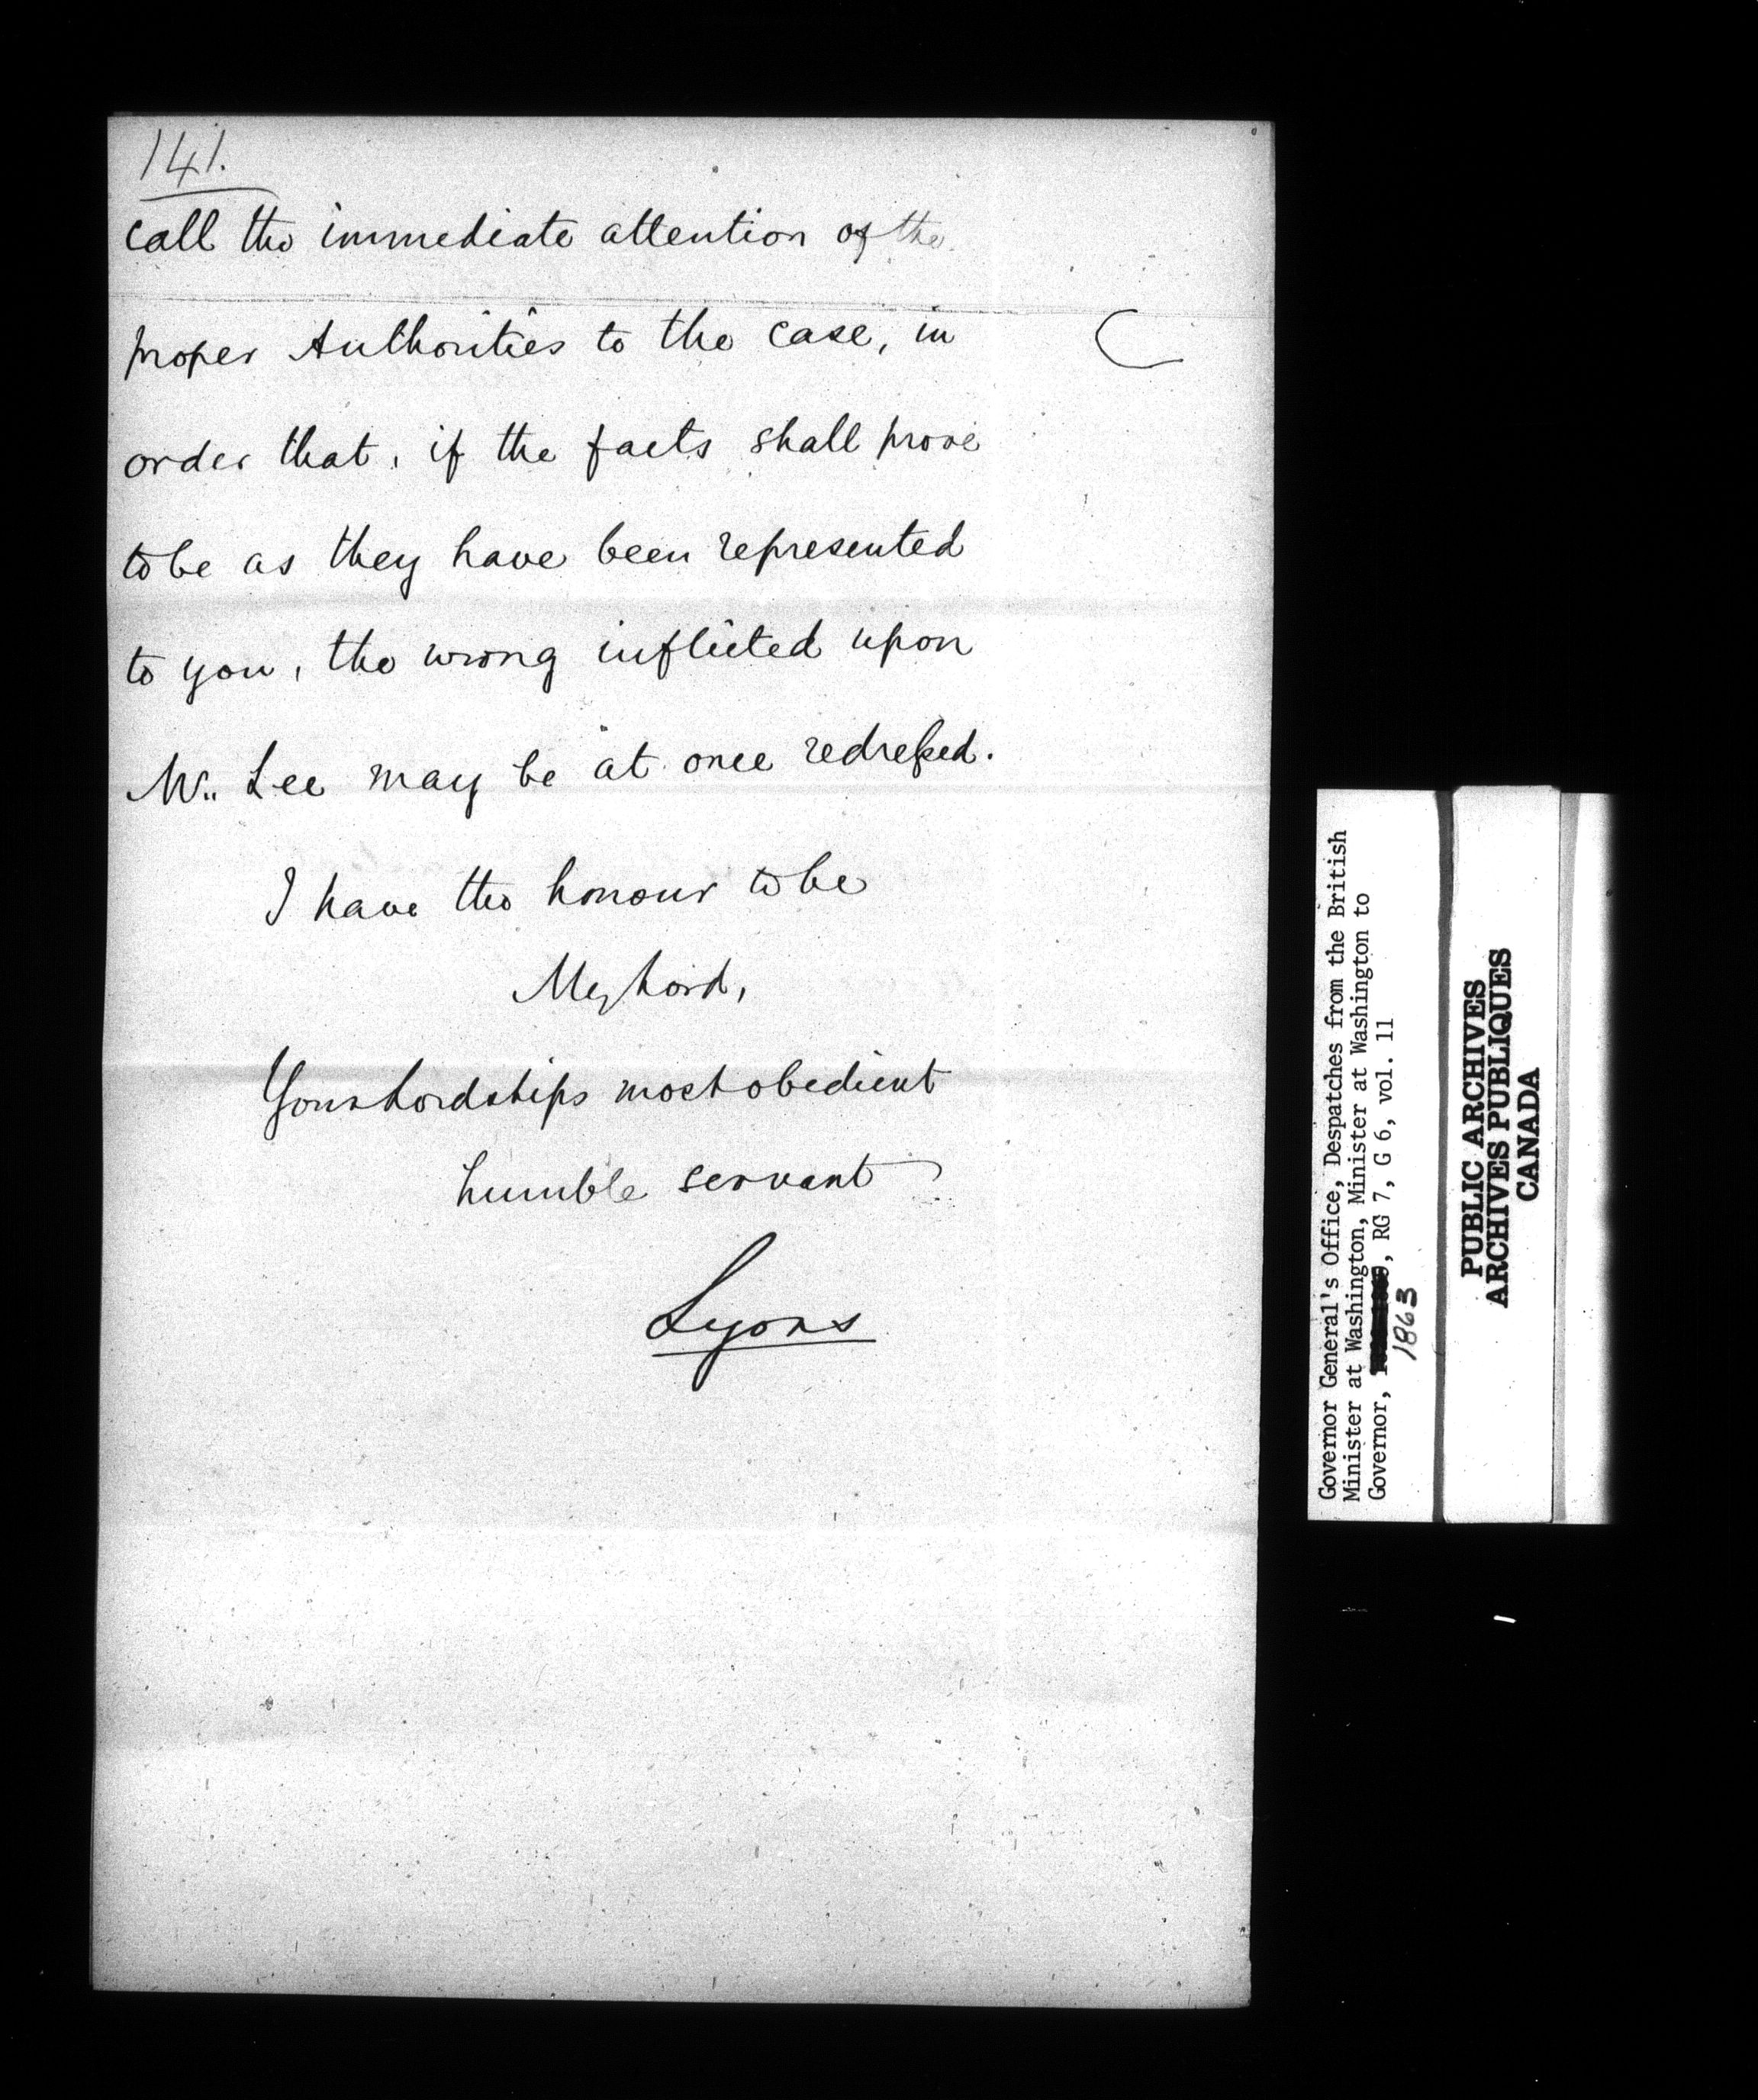 141.
call the immediate attention of the
proper Authorities to the case, in
order that, if the facts shall prove
to be as they have been represented
to you, the wrong inflicted upon
Mr. Lee may be at once redressed.
I have the honour to be
My Lord,
Your Lordships most obedient
humble servant
Lyons
Governor General's Office, Despatches from the British
Minister at Washington, Minister at Washington to
Governor, , RG 7, G 6, vol. 11
1863
PUBLIC ARCHIVES
ARCHIVES PUBLIQUES
CANADA